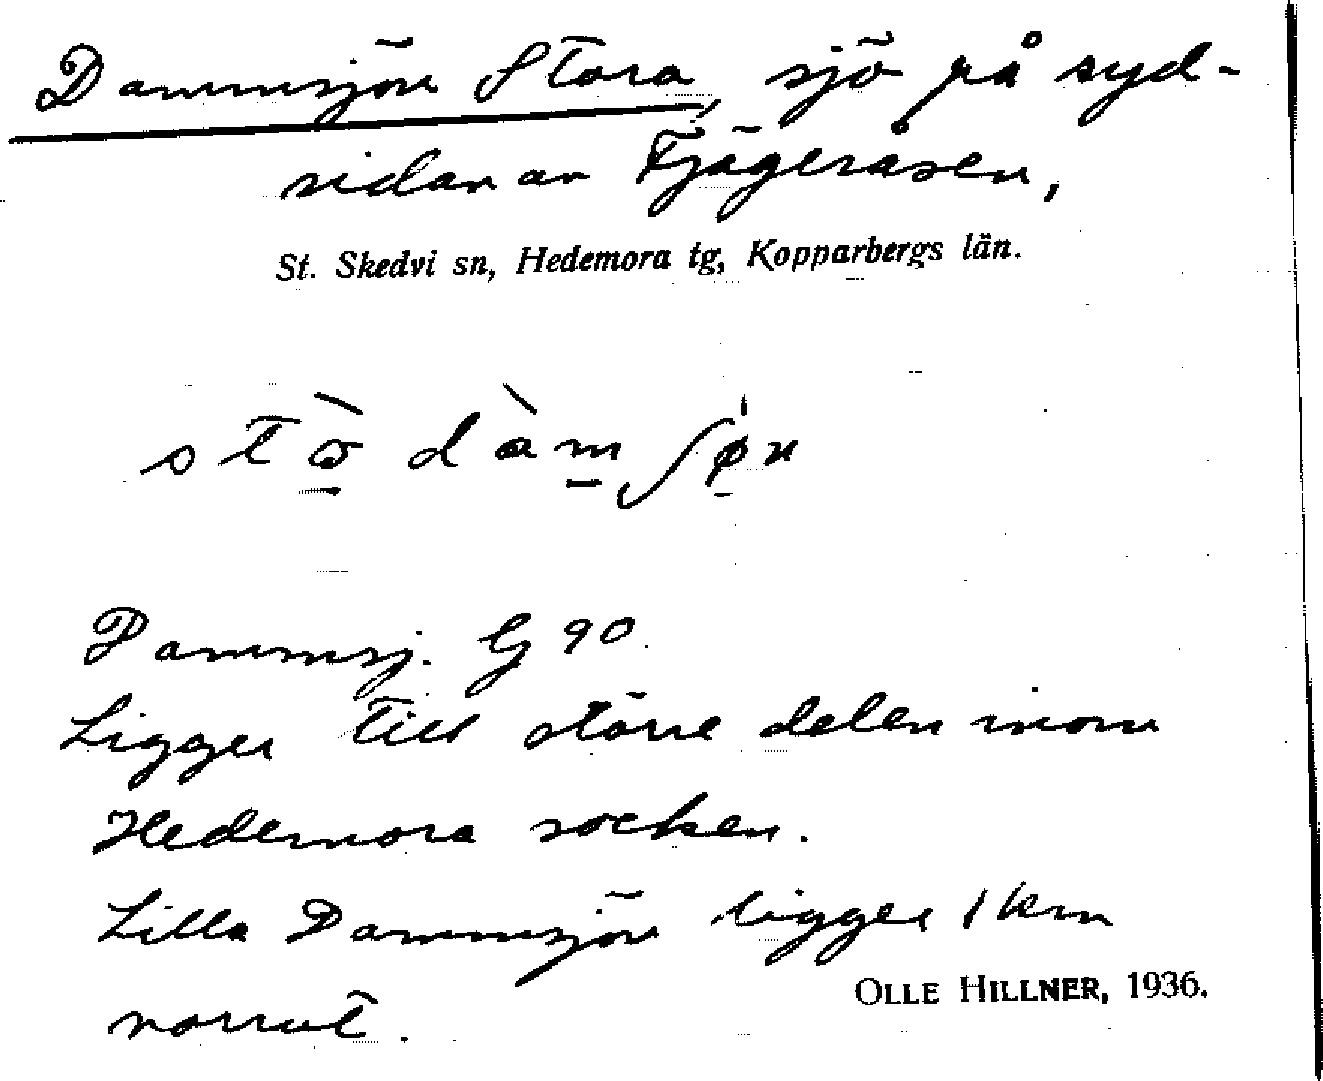 Dammsjön Stora, sjö på syd-
sidan av Tjägeråsen,
St. Skedvi sn, Hedemora tg, Kopparbergs län.
Dammsj. G 90.
Ligger till större delen inom
Hedemora socken.
Lilla Dammsjön ligger 1 km
OLLE HILLNER, 1936.
norrut.